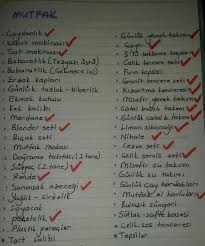 MUTFAK
Çaydanlık
Kahve makinası
Tost makinası
Baharatlık (Tezgah üstü)
Baharatlık (Çekmece içi)
Erzak kapları
Günlük tuzluk - biberlik
Ekmek kutusu
Kek kalıbı
Merdane
Blender seti
Bıçak seti
Mutfak makası
Doğrama tahtası (2 tane)
Süzgeç (2 tane)
Rende
Sarımsak ezeceği
Yağlık - sirkelik
Soyacak
Peçetelik
Plastik
Tart kalıbı
Günlük yemek takımı
Çelik tencere seti
Fırın tepsisi
Granit tencere seti
Kızartma tenceresi
Misafir yemek takımı
Günlük çatal b. takımı
Limon sıkacağı
Nihale
Cezve seti
Çelik servis seti
Misafir su takımı
Günlük su takımı
Günlük çay bardakları
Mutfak el havluları
Bulaşık süngeri
Sütlük - sufle kasesi
Çelik sos tenceresi
Tepsiler